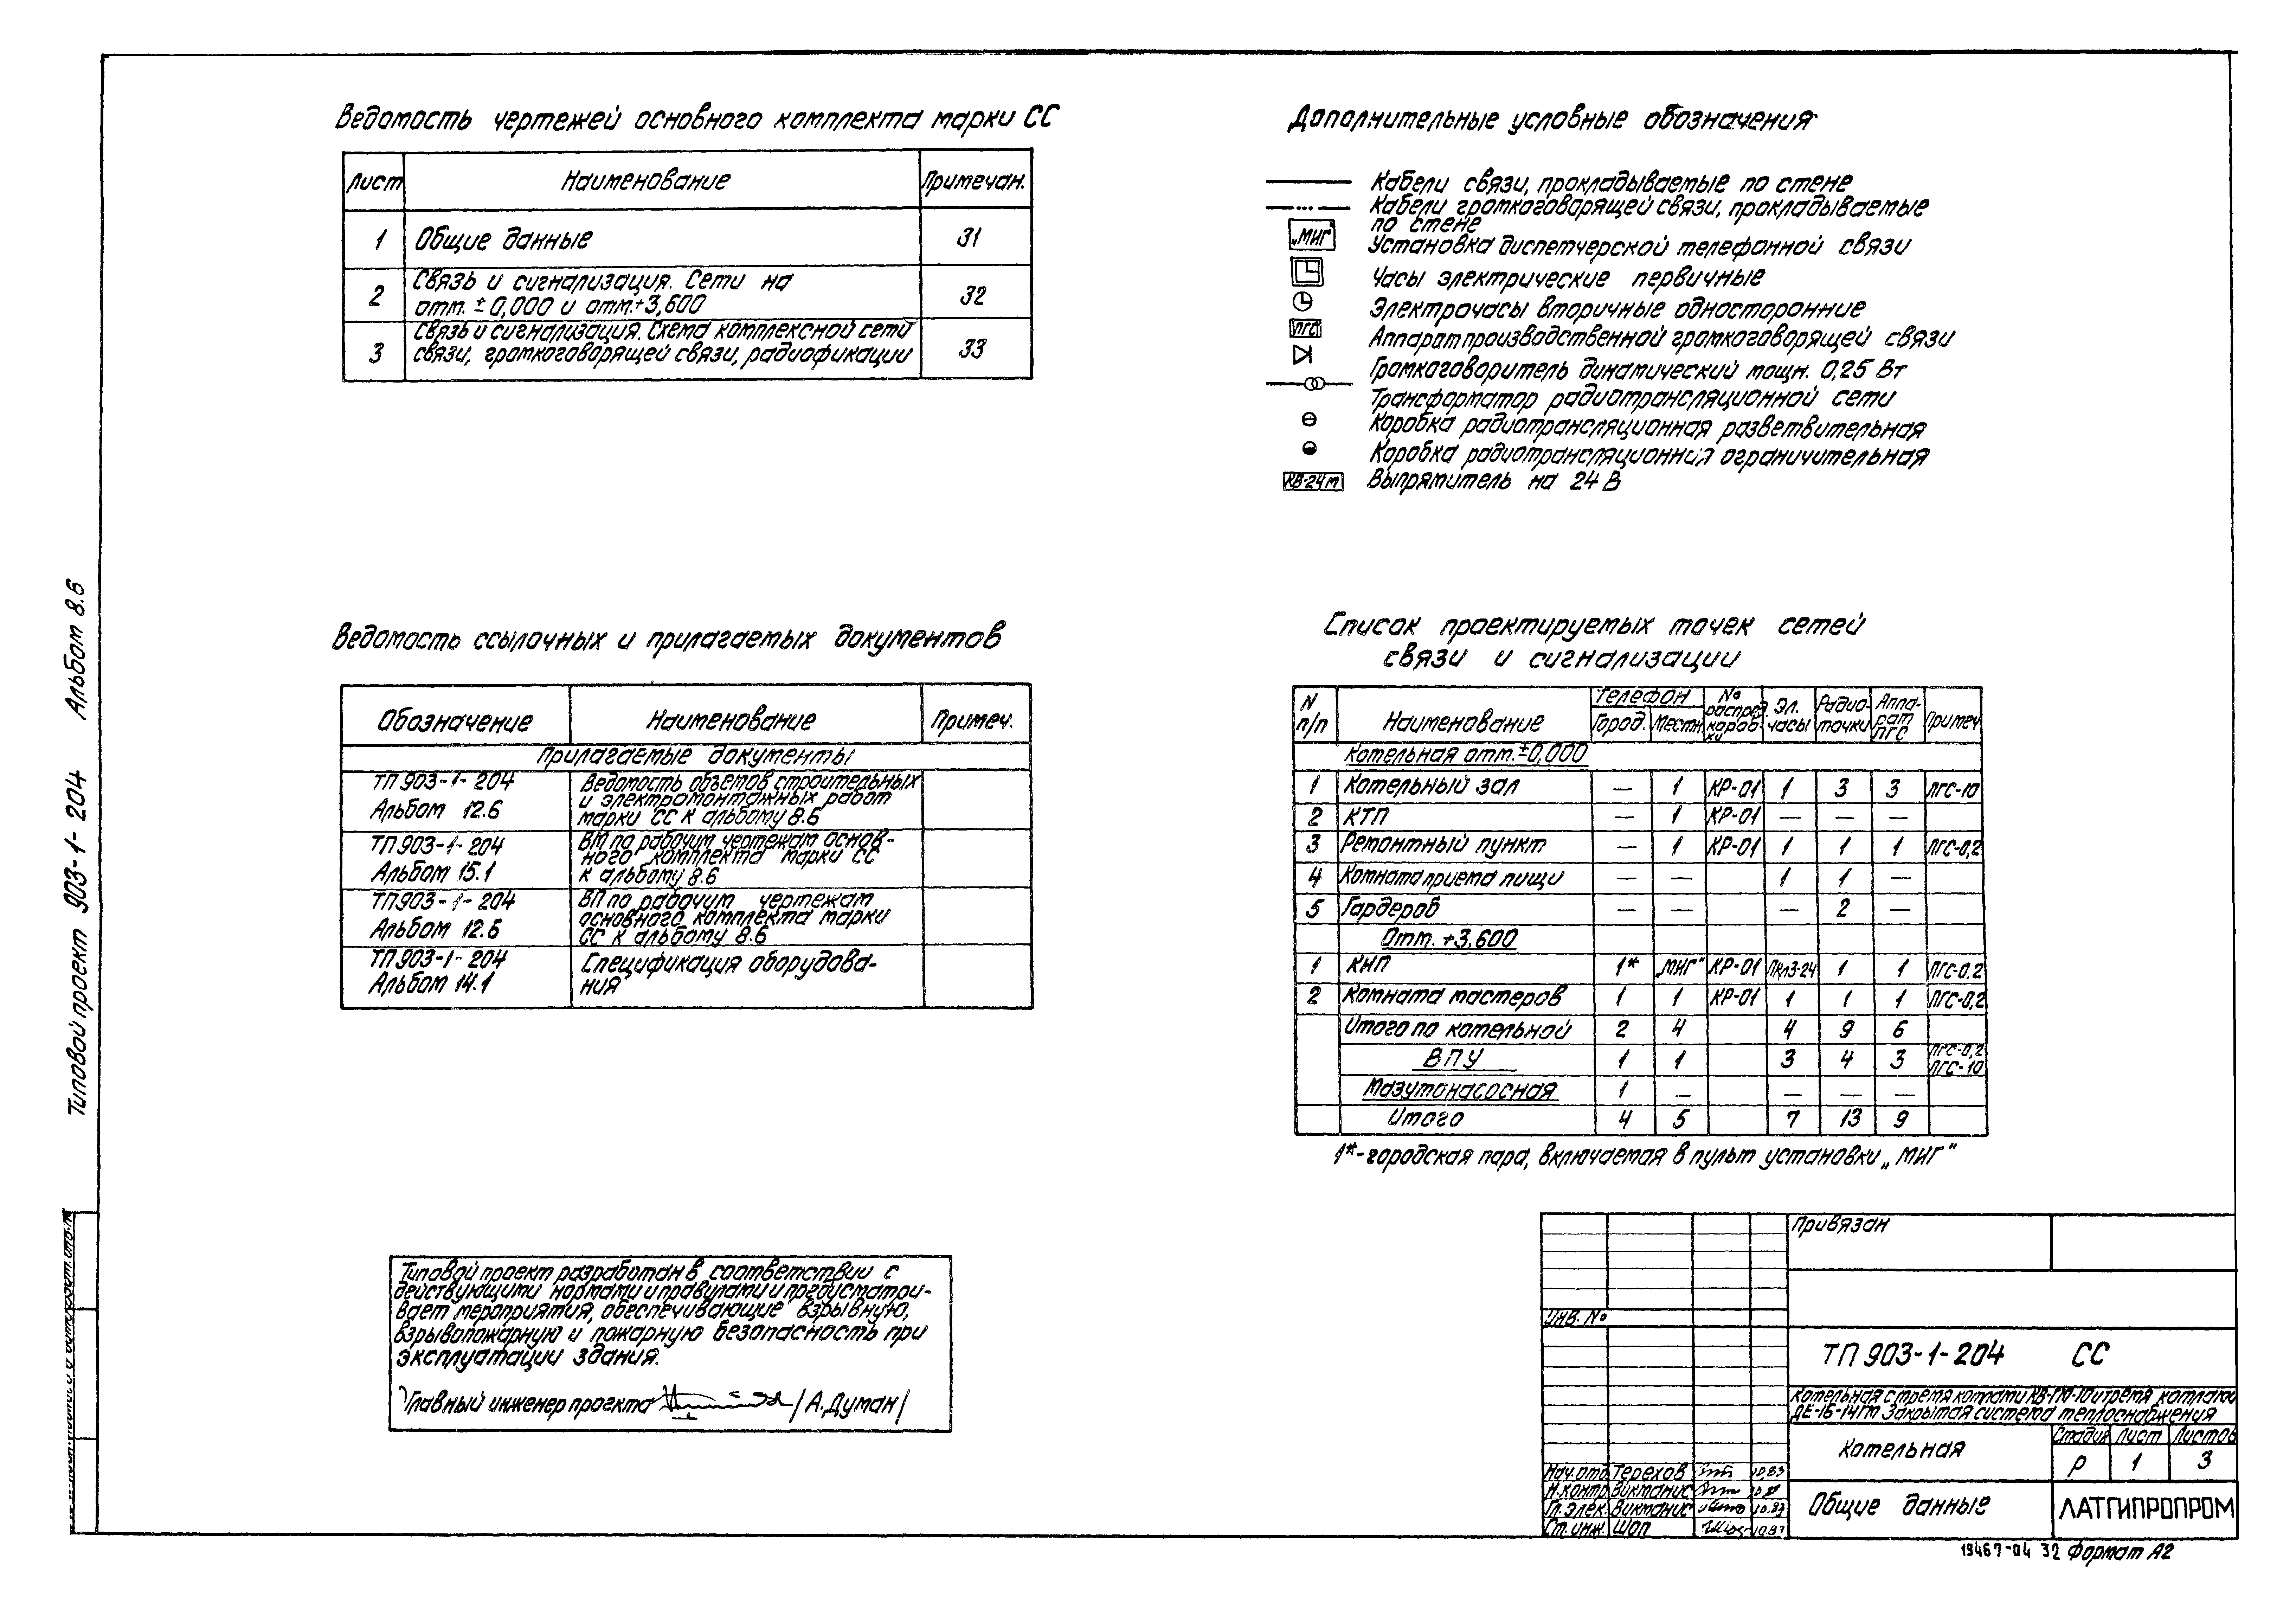 Ведомость чертежей основного комплекта марки СС
Лист Наименование Примечан.
1 Общие данные 31
2 Связь и сигнализация. Сети на
отм. ±0,000 и отм.+3,600 32
3 Связь и сигнализация. Схема комплексной сети
связи, громкоговорящей связи, радиофикации 33
Дополнительные условные обозначения
Кабели связи, прокладываемые по стене
Кабели громкоговорящей связи, прокладываемые
по стене
„МИГ" Установка диспетчерской телефонной связи
Часы электрические первичные
Электрочасы вторичные односторонние
ПГС Аппарат производственной громкоговорящей связи
Громкоговоритель динамический мощн. 0,25 Вт
Трансформатор радиотрансляционной сети
Коробка радиотрансляционная разветвительная
Коробка радиотрансляционная ограничительная
КВ-24м Выпрямитель на 24 В
Ведомость ссылочных и прилагаемых документов
Обозначение Наименование Примеч.
Прилагаемые документы
ТП 903-1-204 Ведомость объемов строительных
Альбом 12.6 и электромонтажных работ
марки СС к альбому 8.6
ТП 903-1-204 ВМ по рабочим чертежам основ-
ного комплекта марки СС
Альбом 15.1 к альбому 8.6
ТП 903-1-204 ВП по рабочим чертежам
основного комплекта марки
Альбом 12.6 СС к альбому 8.6
ТП 903-1-204 Спецификация оборудова-
Альбом 14.1 ния
Список проектируемых точек сетей
связи и сигнализации
N п/п Наименование Телефон Город. Местн. № распред. короб-ки Эл. часы Радио-точки Аппа-рат ПГС Примеч.
Котельная отм. ±0,000
1 Котельный зал — 1 КР-01 1 3 3 ПГС-10
2 КТП — 1 КР-01 — — —
3 Ремонтный пункт — 1 КР-01 1 1 1 ПГС-0,2
4 Комната приема пищи — — 1 1 —
5 Гардероб — — — 2 —
Отм. +3.600
1 КНП 1* „МИГ" КР-01 Пкл3-24 1 1 ПГС-0,2
2 Комната мастеров 1 1 КР-01 1 1 1 ПГС-0,2
Итого по котельной 2 4 4 9 6
ВПУ 1 1 3 4 3 ПГС-0,2 ПГС-10
Мазутонасосная 1 — — — —
Итого 4 5 7 13 9
1*-городская пара, включаемая в пульт установки „МИГ"
Типовой проект разработан в соответствии с
действующими нормами и правилами и предусматри-
вает мероприятия, обеспечивающие взрывную,
взрывопожарную и пожарную безопасность при
эксплуатации здания.
Главный инженер проекта /А. Думан/
Типовой проект 903-1-204 Альбом 8.6
Привязан
Инв. №
ТП 903-1-204 СС
Котельная с тремя котлами КВ-ГМ-10 и тремя котлами
ДЕ-16-14ГМ Закрытая система теплоснабжения
Котельная
Стадия Лист Листов
Р 1 3
Нач. отд. Терехов 10.83
Н. контр. Виктанис
Гл. элек. Виктанис 10.83
Ст. инж. Шоп 10.83
Общие данные
ЛАТГИПРОПРОМ
19467-04 32 Формат А2